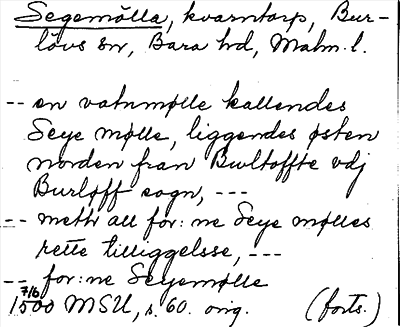 Segemölla, kvarntorp, Bur-
lövs sn, Bara hd, Malm. l.
-- en vatnmølle kallendes
Seye mølle, liggendes østen
norden fran Bultoffte vdj
Burløff sogn, ---
-- meth all for: ne Seye mølles
rette tilliggelsse, ---
-- for: ne Seyemølle
7/6
1500 MSU, s. 60. orig. (forts.)